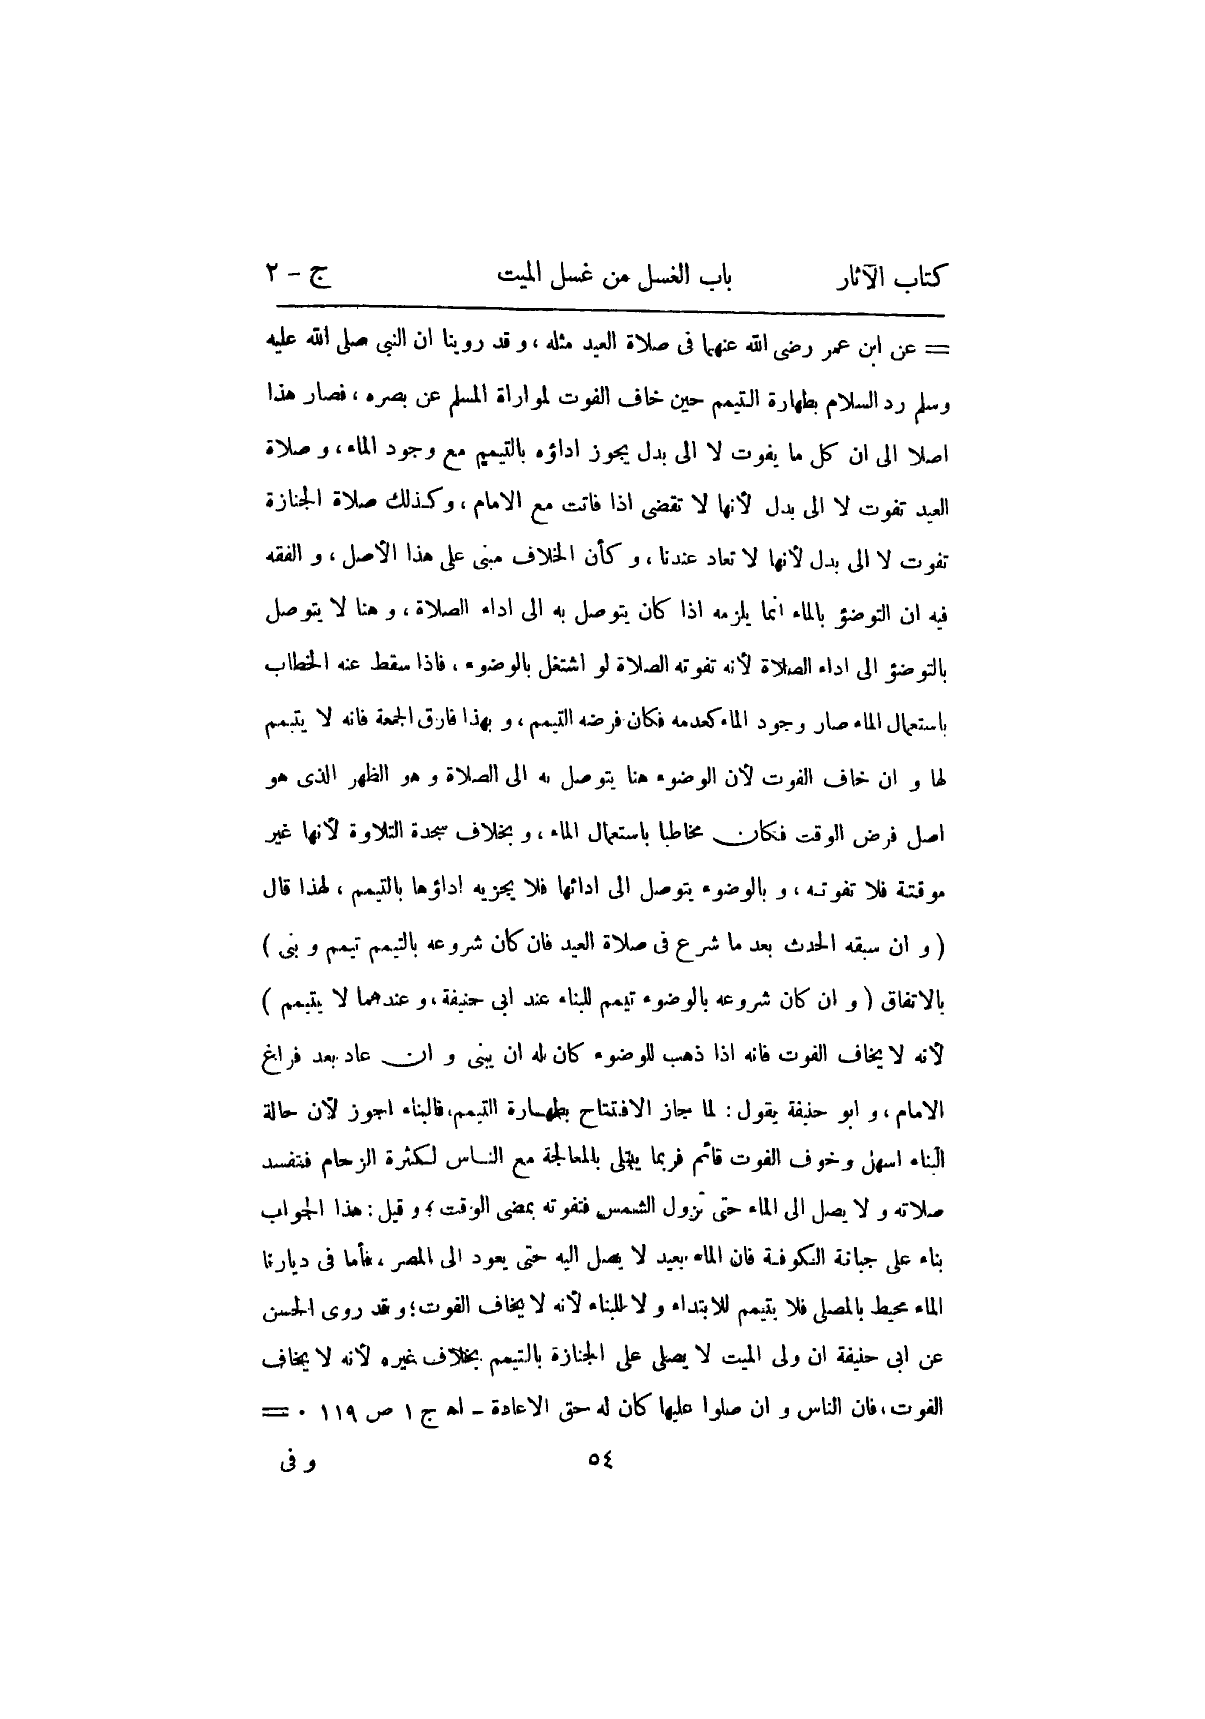 كتاب الآثار باب الغسل من غسل الميت ج - ٢
= عن ابن عمر رضى الله عنهما فى صلاة العيد مثله ، و قد روينا ان النبى صلى الله عليه
وسلم رد السلام بطهارة التيمم حين خاف الفوت لمواراة المسلم عن بصره ، فصار هذا
اصلا الى ان كل ما يفوت لا الى بدل يجوز اداؤه بالتيمم مع وجود الماء ، و صلاة
العيد تفوت لا الى بدل لأنها لا تقضى اذا فاتت مع الامام ، وكذلك صلاة الجنازة
تفوت لا الى بدل لأنها لا تعاد عندنا ، و كأن الخلاف مبنى على هذا الأصل ، و الفقه
فيه ان التوضؤ بالماء انما يلزمه اذا كان يتوصل به الى اداء الصلاة ، و هنا لا يتوصل
بالتوضؤ الى اداء الصلاة لأنه تفوته الصلاة لو اشتغل بالوضوء ، فاذا سقط عنه الخطاب
باستعمال الماء صار وجود الماء كعدمه فكان فرضه التيمم ، و بهذا فارق الجمعة فانه لا يتيمم
لها و ان خاف الفوت لأن الوضوء هنا يتوصل به الى الصلاة و هو الظهر الذى هو
اصل فرض الوقت فكان مخاطبا باستعمال الماء ، و بخلاف سجدة التلاوة لأنها غير
موقتة فلا تفوته ، و بالوضوء يتوصل الى ادائها فلا يجزيه اداؤها بالتيمم ، لهذا قال
( و ان سبقه الحدث بعد ما شرع فى صلاة العيد فان كان شروعه بالتيمم تيمم و بنى )
بالاتفاق ( و ان كان شروعه بالوضوء تيمم للبناء عند ابى حنيفة ، و عندهما لا يتيمم )
لأنه لا يخاف الفوت فانه اذا ذهب للوضوء كان له ان يبنى و ان عاد بعد فراغ
الامام ، و ابو حنيفة يقول : لما جاز الافتتاح بطهارة التيمم فالبناء اجوز لأن حالة
البناء اسهل وخوف الفوت قائم فربما يبتلى بالمعالجة مع الناس لكثرة الزحام فتفسد
صلاته و لا يصل الى الماء حتى تزول الشمس فتفوته بمضى الوقت ؛ و قيل : هذا الجواب
بناء على جبانة الكوفة فان الماء بعيد لا يصل اليه حتى يعود الى المصر ، فأما فى ديارنا
الماء محيط بالمصلى فلا يتيمم للابتداء و لا للبناء لأنه لا يخاف الفوت ؛ و قد روى الحسن
عن ابى حنيفة ان ولى الميت لا يصلى على الجنازة بالتيمم بخلاف غيره لأنه لا يخاف
الفوت ، فان الناس و ان صلوا عليها كان له حق الاعادة - اه ج ١ ص ١١٩ . =
٥٤ و فى